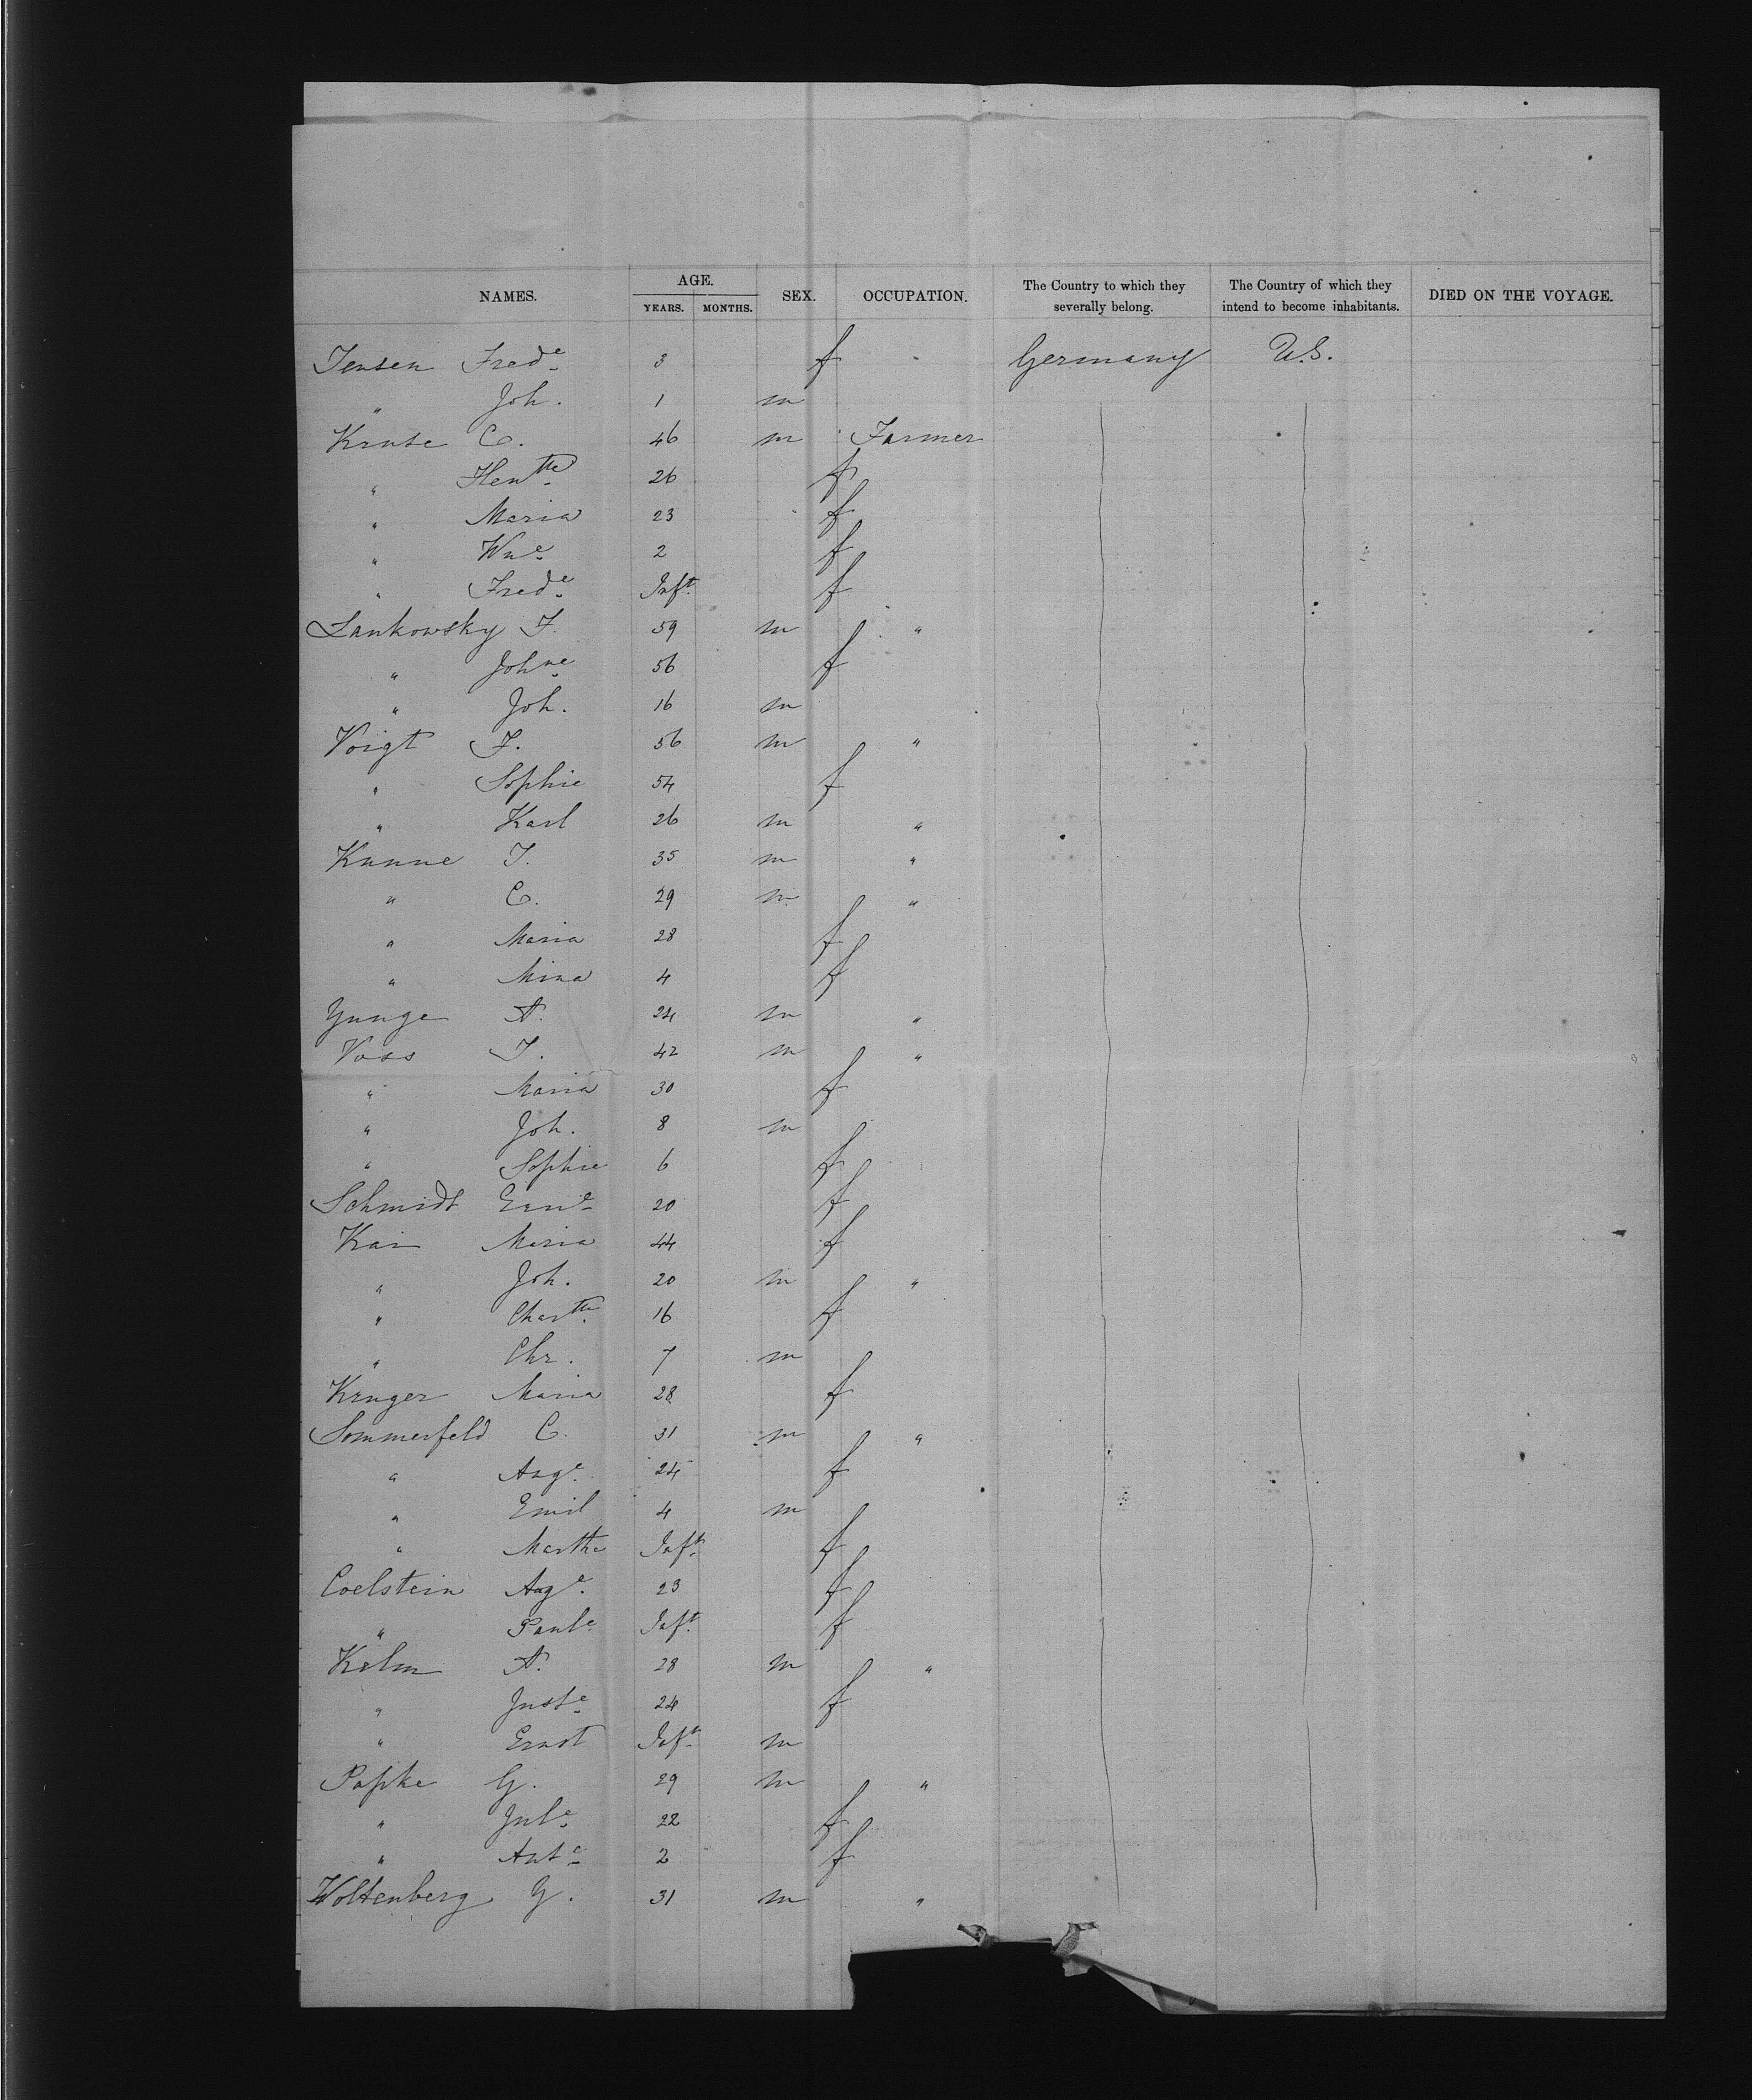 NAMES. AGE. YEARS. MONTHS. SEX. OCCUPATION. The Country to which they severally belong. The Country of which they intend to become inhabitants. DIED ON THE VOYAGE.
Jensen Fredᵉ 3 f Germany U.S.
" Joh. 1 m
Kruse C. 46 m Farmer
" Hentte 26 f
" Maria 23 f
" Wneᵉ 2 f
" Fredᵉ Inft. f
Lankowsky F. 59 m "
" Johne 56 f
" Joh. 16 m
Voigt F. 56 m "
" Sophie 54 f
" Karl 26 m "
Kunne J. 35 m "
" C. 29 m "
" Maria 28 f
" Mina 4 f
Yunge A. 24 m "
Voss J. 42 m "
" Maria 30 f
" Joh. 8 m
" Sophie 6 f
Schmidt Erneᵉ 20 f
Kai Maria 44 f
" Joh. 20 m "
" Chartte. 16 f
" Chr. 7 m
Kruger Maria 28 f
Sommerfeld C. 31 m "
" Augᵉ. 24 f
" Emil 4 m
" Martha Inft. f
Coelstein Augᵉ. 23 f
" Paulᵉ Inft. f
Kelm A. 28 m "
" Justᵉ 24 f
" Ernst Inft. m
Papke G. 29 m "
" Julᵉ 22 f
" Antᵉ 2 f
Woltenberg G. 31 m "